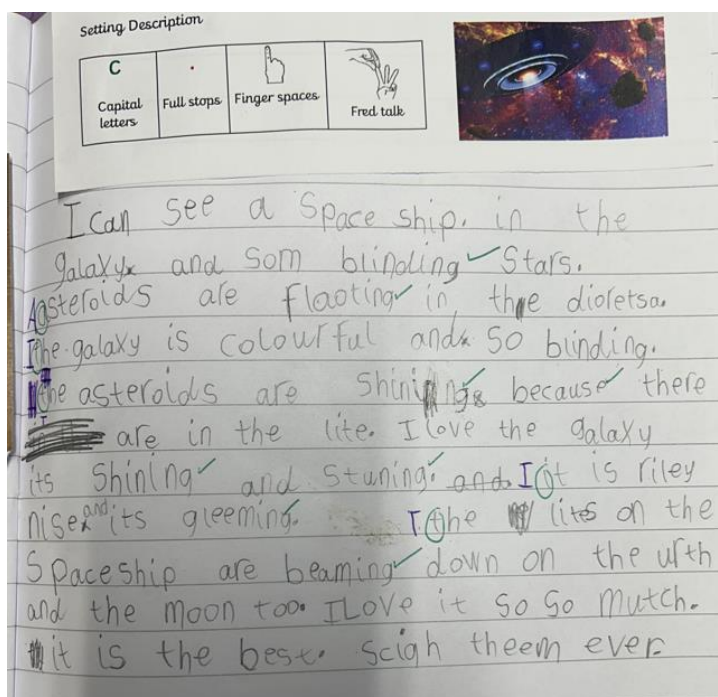 Setting Description
C
Capital letters
.
Full stops
Finger spaces
Fred talk
I can see a Space ship. in the
galaxy. and som blinding Stars.
Aasteroids are flaoting in the dioretsa.
Tthe galaxy is colourful and. so blinding.
Tthe asteroids are shining. because there
are in the lite. I love the galaxy
its shining and stuning. and. Iit is riley
nise. and its gleeming. Tthe lites on the
Spaceship are beaming down on the urth
and the moon too. I Love it so so mutch.
it is the best. scigh theem ever.